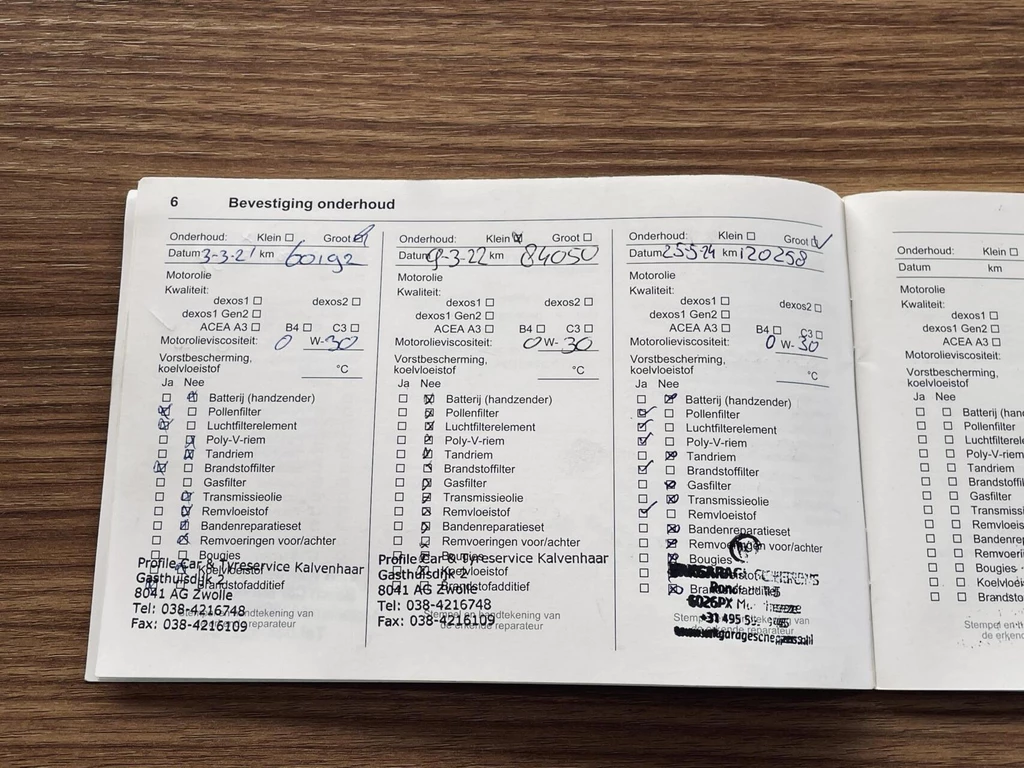 6 Bevestiging onderhoud
Onderhoud: Klein Groot
Datum 3-3-21 km 60192
Motorolie
Kwaliteit:
dexos1 dexos2
dexos1 Gen2
ACEA A3 B4 C3
Motorolieviscositeit: 0 W-30
Vorstbescherming,
koelvloeistof °C
Ja Nee
Batterij (handzender)
Pollenfilter
Luchtfilterelement
Poly-V-riem
Tandriem
Brandstoffilter
Gasfilter
Transmissieolie
Remvloeistof
Bandenreparatieset
Remvoeringen voor/achter
Bougies
Profile Car & Tyreservice Kalvenhaar
Koelvloeistof
Gasthuisdijk 2
Brandstofadditief
8041 AG Zwolle
Tel: 038-4216748
Stempel en handtekening van
Fax: 038-4216109
de erkende reparateur
Onderhoud: Klein Groot
Datum 9-3-22 km 84050
Motorolie
Kwaliteit:
dexos1 dexos2
dexos1 Gen2
ACEA A3 B4 C3
Motorolieviscositeit: 0 W-30
Vorstbescherming,
koelvloeistof °C
Ja Nee
Batterij (handzender)
Pollenfilter
Luchtfilterelement
Poly-V-riem
Tandriem
Brandstoffilter
Gasfilter
Transmissieolie
Remvloeistof
Bandenreparatieset
Remvoeringen voor/achter
Bougies
Profile Car & Tyreservice Kalvenhaar
Koelvloeistof
Gasthuisdijk 2
Brandstofadditief
8041 AG Zwolle
Tel: 038-4216748
Stempel en handtekening van
Fax: 038-4216109
de erkende reparateur
Onderhoud: Klein Groot
Datum 255-24 km 120258
Motorolie
Kwaliteit:
dexos1 dexos2
dexos1 Gen2
ACEA A3 B4 C3
Motorolieviscositeit: 0 W-30
Vorstbescherming,
koelvloeistof °C
Ja Nee
Batterij (handzender)
Pollenfilter
Luchtfilterelement
Poly-V-riem
Tandriem
Brandstoffilter
Gasfilter
Transmissieolie
Remvloeistof
Bandenreparatieset
Remvoeringen voor/achter
Bougies
6026PX
+31 495
Stempel en handtekening van
de erkende reparateur
Onderhoud: Klein
Datum km
Motorolie
Kwaliteit:
dexos1
dexos1 Gen2
ACEA A3
Motorolieviscositeit:
Vorstbescherming,
koelvloeistof
Ja Nee
Batterij (hand
Pollenfilter
Luchtfiltere
Poly-V-riem
Tandriem
Brandstoffi
Gasfilter
Transmiss
Remvloeis
Bandenre
Remvoeri
Bougies
Koelvloei
Brandsto
Stempel en h
de erken